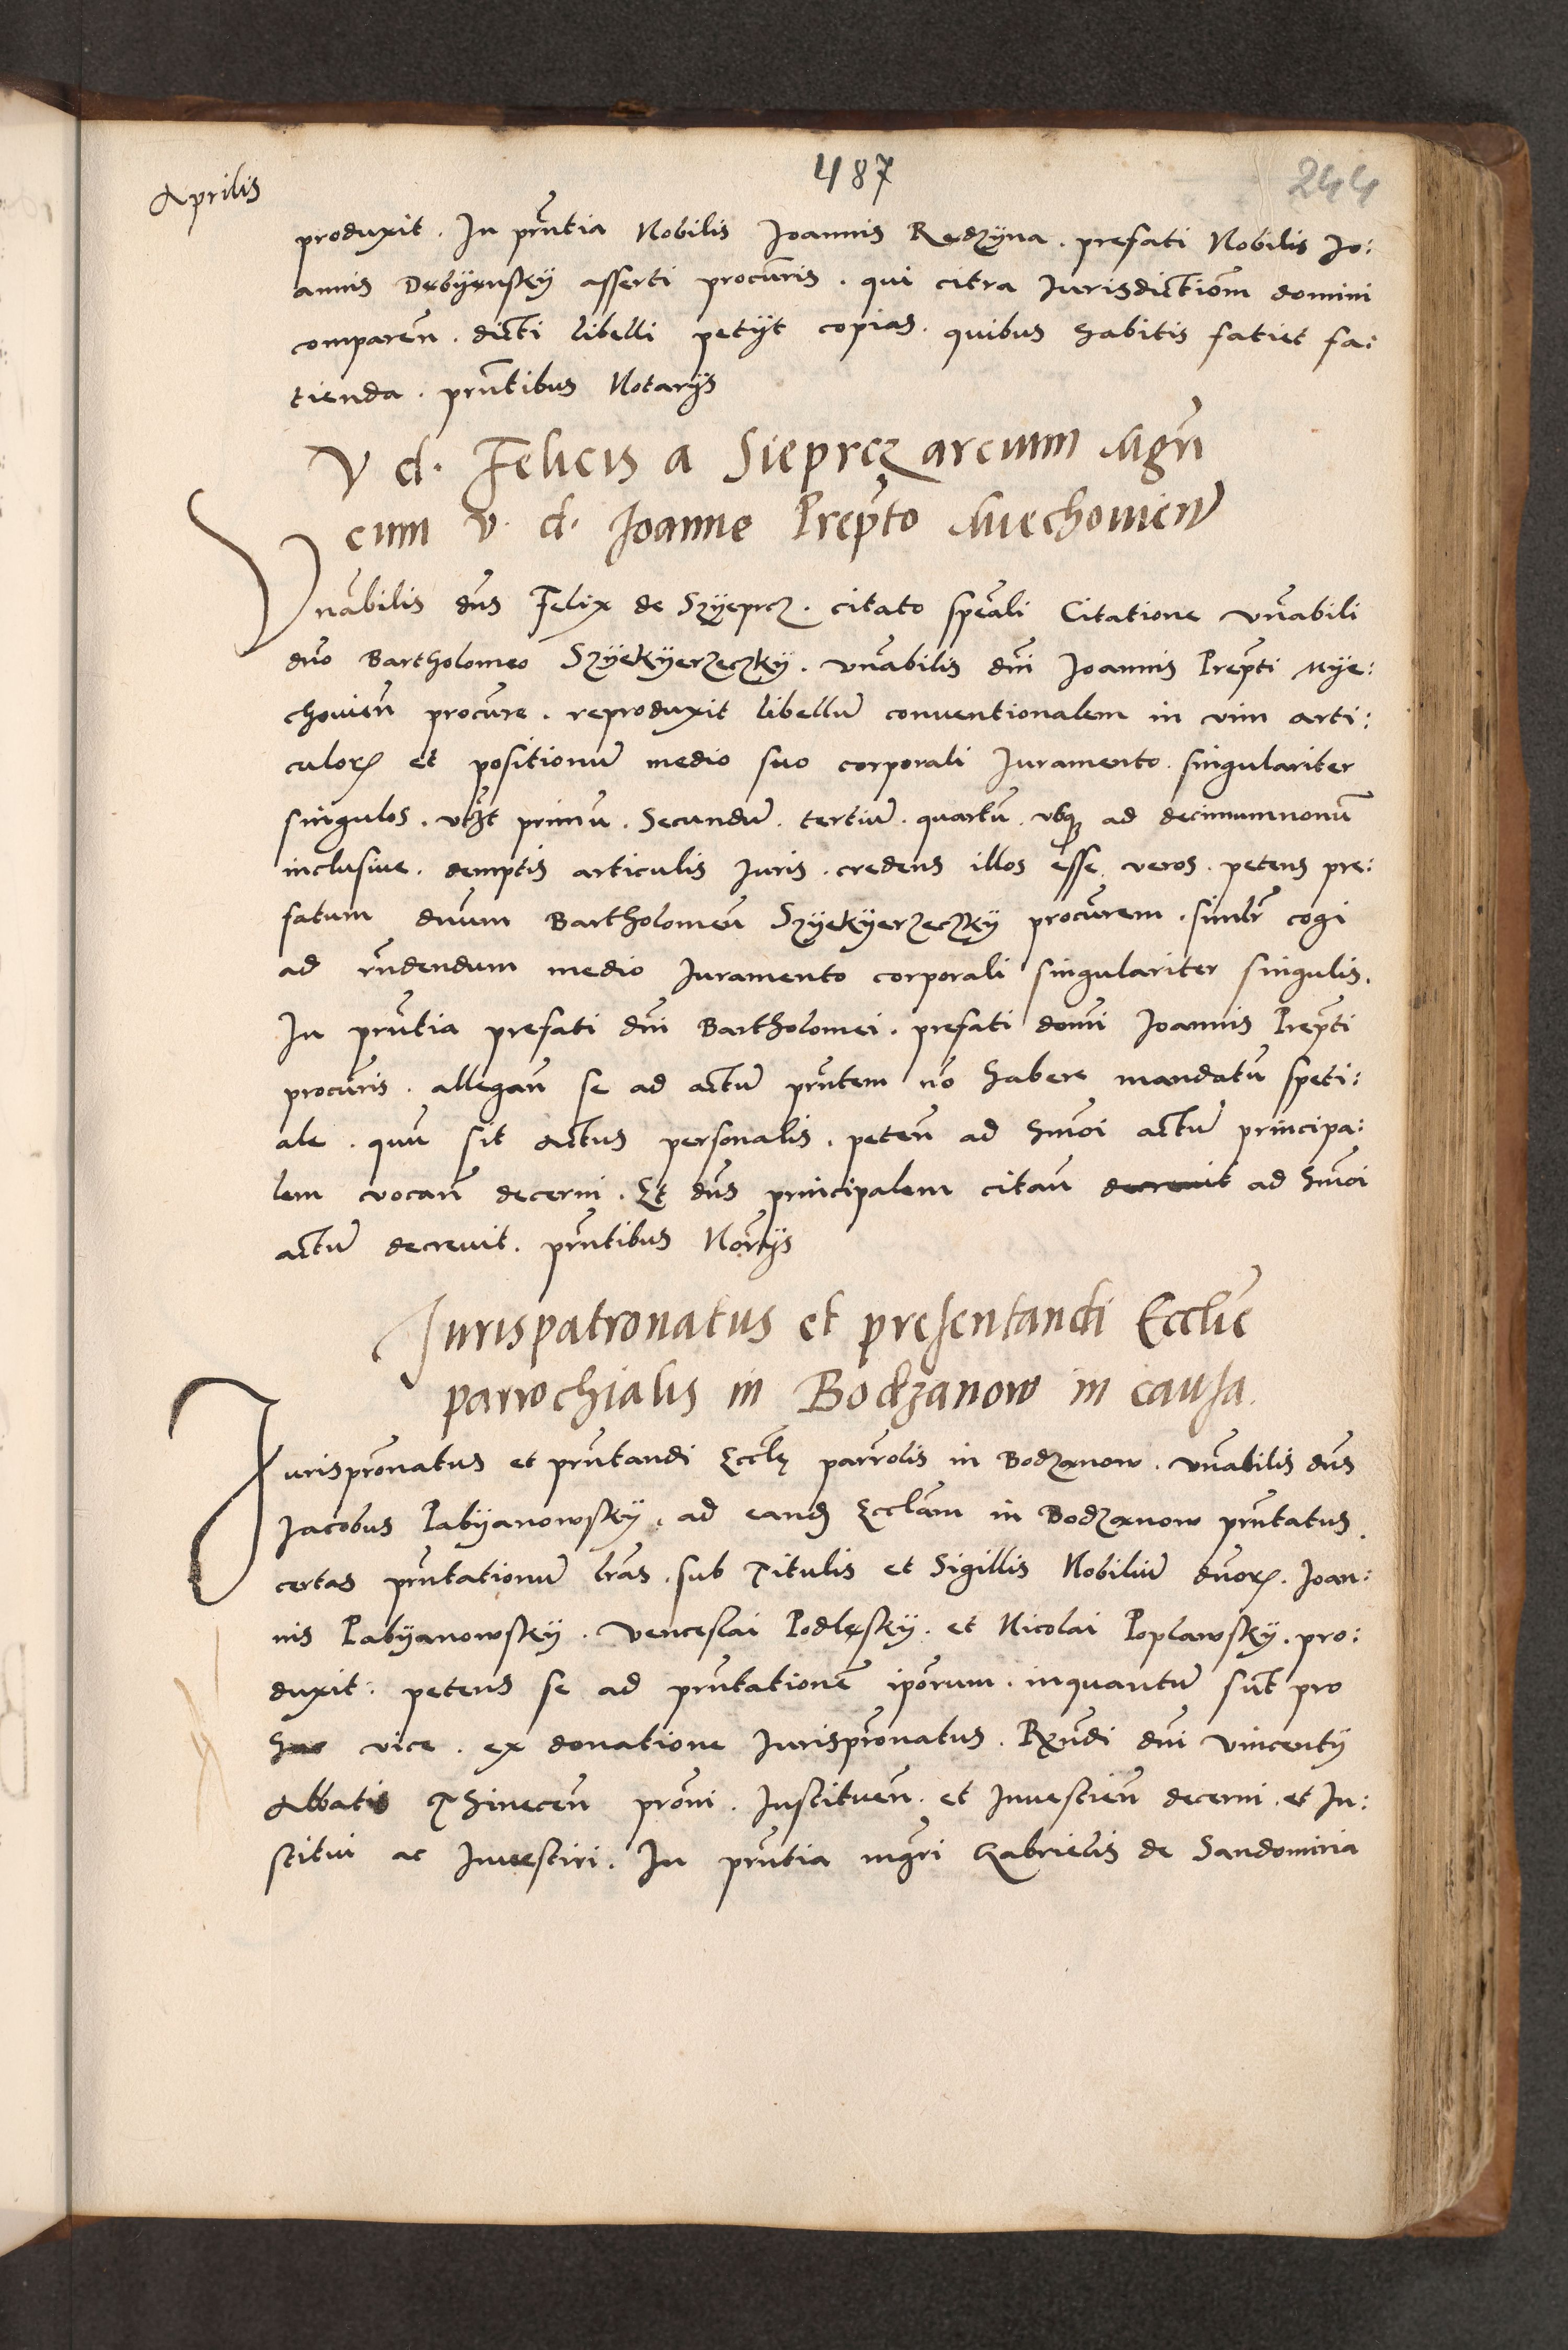 487
244
Aprilis
produxit. In prñtia Nobilis Joannis Redzyna. prefati Nobilis Jo:
annis Debyensky asserti procũris. qui citra Jurisdictiom̃ domini
comparen̄. dicti libelli petÿt copias. quibus habitis fatiet fa:
tienda. prñtibus Notarÿs
V d. Felicis a Sieprcz arcium Mgrī
cum v. d. Joanne Prep̃to Miechovien̄
Vnãbilis dñs Felix de Szÿeprcz. citato spẽali Citatione vñabili
dño Bartholomeo Szÿekÿerzeczkÿ. vñabilis dñi Joannis Prep̃ti Mÿe:
chovien̄ procũre. reproduxit libellũ conventionalem in vim arti:
culorꝝ et positionũ medio suo corporali Juramento. singulariter
singulos. vtꝫt primũ. Secundũ. tertiũ. quartũ. vsqꝫ ad decimumnonũ
inclusive. demptis articulis Juris. credens illos esse veros. petens pre:
fatum dnum Bartholomeũ Szÿekÿerzeczkÿ procũrem. simlr̃ cogi
ad rñdendum medio Juramento corporali singulariter singulis.
In prñtia prefati dñi Bartholomei. prefati domi Joannis Prep̃ti
procũris. allegan̄ se ad actũ prñtem nõ habere mandatũ speti:
ale. quũ sit actus personalis. peten̄ ad hmõi actũ principa:
lem vocan̄ decerni. Et dñs principalem citan̄ decrevit ad hmõi
actũ decrevit. prñtibus Norĩÿs
Jurispatronatus et presentandi Eccliẽ
parrochialis in Bodzanow in causa.
Jurisprõnatus et prñtandi Ecclẽ parrõlis in Bodzanow. vñabilis dñs
Jacobus Pabÿanowskÿ. ad eandꝫ Ecclãm in Bodzanow prñtatus.
certas prñtationũ lrãs. sub Titulis et Sigillis Nobiliũ dnõrꝝ. Joan:
nis Pabÿanowskÿ. Venceslai Podlęskÿ. et Nicolai Poplawskÿ. pro:
duxit: petens se ad prñtationẽ ipõrum. inquantũ sũt pro
hac vice. ex donatione Jurisprõnatus. Rxñdi dñi Vincentÿ
Abbatis Thinecen̄ prõni. Instituen̄. et Investien̄ decerni. et In:
stitui ac Investiri. In prñtia mgr̃i Gabrielis de Sandomiria